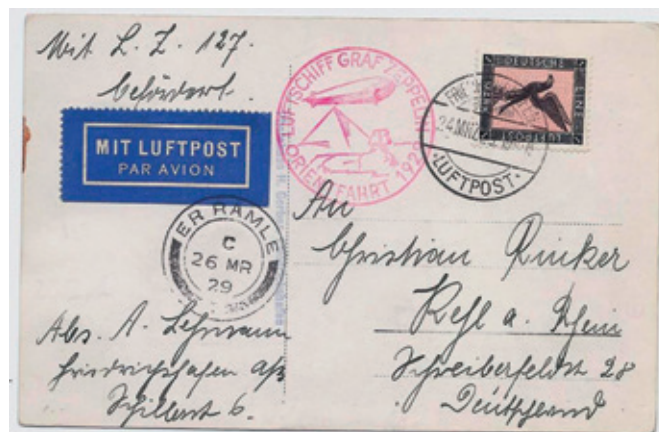 Mit L. Z. 127.
befördert.
MIT LUFTPOST
PAR AVION
LUFTSCHIFF GRAF ZEPPELIN
ORIENTFAHRT 1929
DEUTSCHE
EINE
MARK
LUFTPOST
LUFTPOST
ER RAMLE
C
26 MR
29
An
Christian Rinker
Kehl a. Rhein
Schreiberfeldstr 28
Deutschland
Abs. A. Lehmann
Friedrichshafen a/B
Schillerst 6.